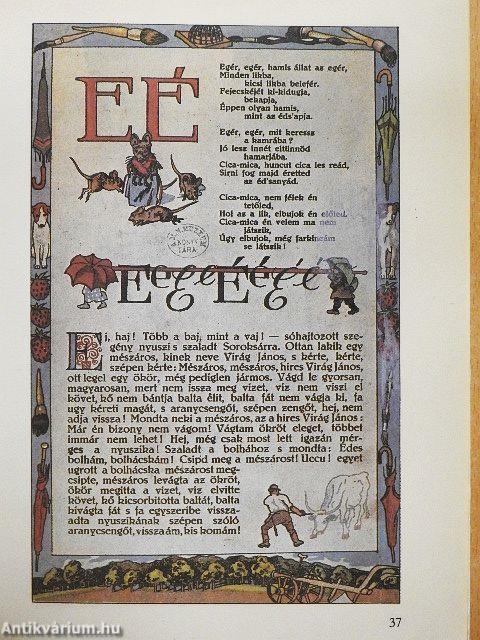 EÉ
Egér, egér, hamis állat az egér,
Minden likba
kicsi likba belefér.
Fejecskéjét ki-kidugja,
bekapja,
Éppen olyan hamis,
mint az éds'apja.
Egér, egér, mit keressz
a kamrába?
Jó lesz innét eltünnöd
hamarjába.
Cica-mica, huncut cica les reád,
Sirni fog majd éretted
az éd'sanyád.
Cica-mica, nem félek én
tetőled,
Hol az a lik, elbujok én előled.
Cica-mica én velem ma nem
játszik,
Úgy elbujok, még farkincám
se látszik!
KÖNYV
TÁRA
E e É é
Ej, haj! Több a baj, mint a vaj! — sóhajtozott sze-
gény nyuszi s szaladt Soroksárra. Ottan lakik egy
mészáros, kinek neve Virág János, s kérte, kérte,
szépen kérte: Mészáros, mészáros, híres Virág János,
ott legel egy ökör, még pediglen jármos. Vágd le gyorsan,
magyarosan, mert nem issza meg vizet, viz nem viszi el
követ, kő nem bántja balta élit, balta fát nem vágja ki, fa
ugy kéreti magát, s aranycsengőt, szépen zengőt, hej, nem
adja vissza! Mondta neki a mészáros, az a hires Virág János:
Már én bizony nem vágom! Vágtam ökröt eleget, többet
immár nem lehet! Hej, még csak most lett igazán mér-
ges a nyuszika! Szaladt a bolhához s mondta: Édes
bolhám, bolhácskám! Csipd meg a mészárost! Uccu! egyet
ugrott a bolhácska mészárost meg-
csipte, mészáros levágta az ökröt,
ökör megitta a vizet, viz elvitte
követ, kő kicsorbitotta baltát, balta
kivágta fát s fa egyszeribe vissza-
adta nyuszikának szépen szóló
aranycsengőt, vissza ám, kis komám!
37
Antikvárium.hu